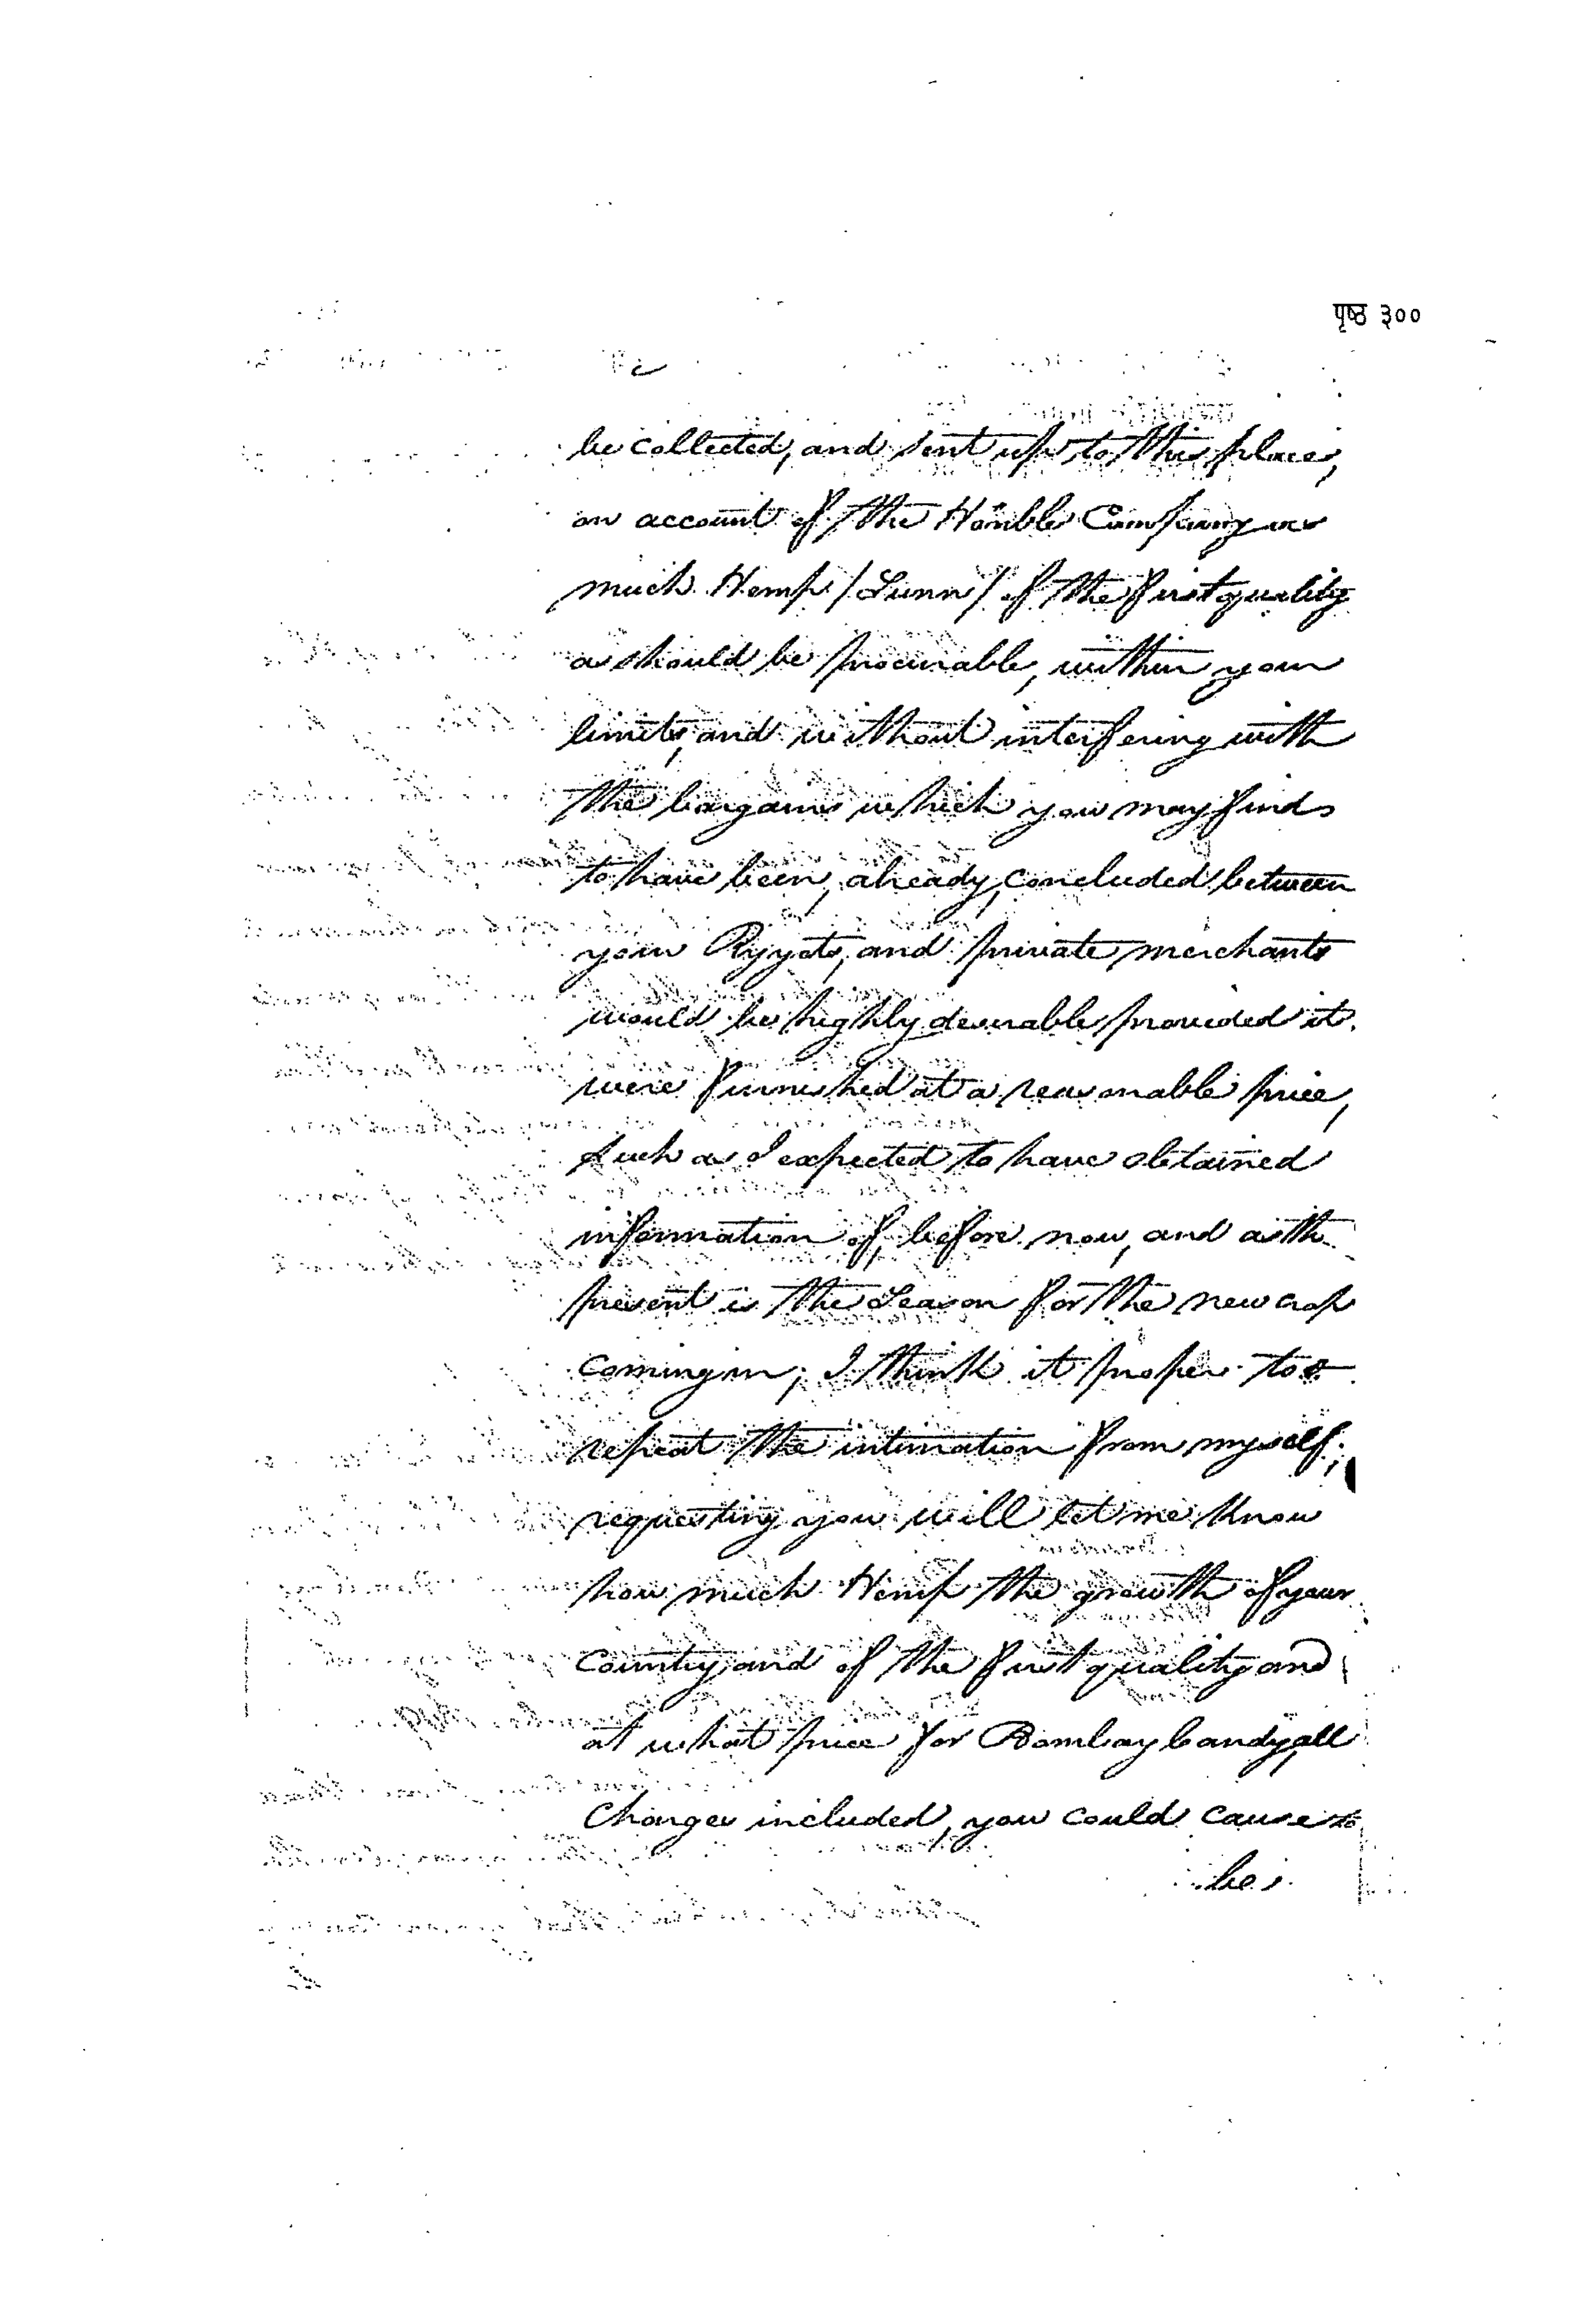 पृष्ठ ३००
be collected, and sent up to this place,
on account of the Honble Company as
much Hemp / Sunn / of the first quality
as should be procurable, within your
limits, and without interfering with
the bargains which you may find
to have been, already, concluded between
your Ryyats, and private merchants
would be highly desirable provided it
were furnished at a reasonable price,
such as I expected to have obtained
information of, before now, and as the
present is the Season for the new crop
coming in; I think it proper to
repeat the intimation from myself;
requesting you will let me know
how much Hemp the growth of your
Country, and of the first quality and
at what price for Bombay Candy, all
Charges included, you could cause to
be